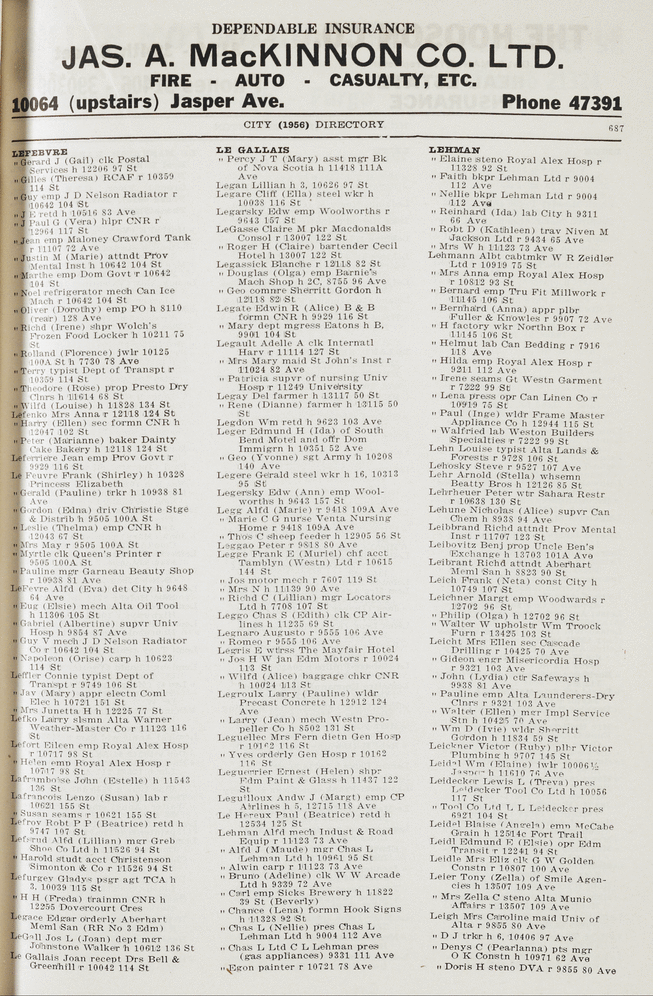 DEPENDABLE INSURANCE
JAS. A. MacKINNON CO. LTD.
FIRE - AUTO - CASUALTY, ETC.
10064 (upstairs) Jasper Ave. Phone 47391
CITY (1956) DIRECTORY 687
LEFEBVRE
" Gerard J (Gail) clk Postal
Services h 12206 97 St
" Gilles (Theresa) RCAF r 10359
114 St
" Guy emp J D Nelson Radiator r
10642 104 St
" J E retd h 10516 83 Ave
" J Paul G (Vera) hlpr CNR r
12964 117 St
" Jean emp Maloney Crawford Tank
r 11107 72 Ave
" Justin M (Marie) attndt Prov
Mental Inst h 10642 104 St
" Marthe emp Dom Govt r 10642
104 St
" Noel refrigerator mech Can Ice
Mach r 10642 104 St
" Oliver (Dorothy) emp PO h 8110
(rear) 128 Ave
" Richd (Irene) shpr Wolch's
Frozen Food Locker h 10211 75
St
" Rolland (Florence) jwlr 10125
100A St h 7730 78 Ave
" Terry typist Dept of Transpt r
10359 114 St
" Theodore (Rose) prop Presto Dry
Clnrs h 11614 68 St
" Wilfd (Louise) h 11828 134 St
Lefenko Mrs Anna r 12118 124 St
" Harry (Ellen) sec formn CNR h
12047 102 St
" Peter (Marianne) baker Dainty
Cake Bakery h 12118 124 St
Leferriere Jean emp Prov Govt r
9929 116 St
Le Feuvre Frank (Shirley) h 10328
Princess Elizabeth
" Gerald (Pauline) trkr h 10938 81
Ave
" Gordon (Edna) driv Christie Stge
& Distrib h 9505 100A St
" Leslie (Thelma) emp CNR h
12043 67 St
" Mrs May r 9505 100A St
" Myrtle clk Queen's Printer r
9505 100A St
" Pauline mgr Garneau Beauty Shop
r 10938 81 Ave
LeFevre Alfd (Eva) det City h 9648
64 Ave
" Eug (Elsie) mech Alta Oil Tool
h 11306 105 St
" Gabriel (Albertine) supvr Univ
Hosp h 9854 87 Ave
" Guy V mech J D Nelson Radiator
Co r 10642 104 St
" Napoleon (Orise) carp h 10623
114 St
Leffler Connie typist Dept of
Transpt r 9749 106 St
" Jay (Mary) appr electn Coml
Elec h 10721 151 St
" Mrs Junetta H h 12225 77 St
Lefko Larry slsmn Alta Warner
Weather-Master Co r 11123 116
St
Lefort Eileen emp Royal Alex Hosp
r 10717 98 St
" Helen emp Royal Alex Hosp r
10717 98 St
Laframboise John (Estelle) h 11543
136 St
Lafrancois Lenzo (Susan) lab r
10621 155 St
" Susan seams r 10621 155 St
Lefroy Robt P P (Beatrice) retd h
9747 107 St
Lefsrud Alfd (Lillian) mgr Greb
Shoe Co Ltd h 11526 94 St
" Harold studt acct Christenson
Simonton & Co r 11526 94 St
Lefurgey Gladys psgr agt TCA h
3, 10039 115 St
" H H (Freda) trainmn CNR h
12255 Dovercourt Cres
Legace Edgar orderly Aberhart
Meml San (RR No 3 Edm)
LeGall Jos L (Joan) dept mgr
Johnstone Walker h 10612 136 St
Le Gallais Joan recept Drs Bell &
Greenhill r 10042 114 St
LE GALLAIS
" Percy J T (Mary) asst mgr Bk
of Nova Scotia h 11418 111A
Ave
Legan Lillian h 3, 10626 97 St
Legare Cliff (Ella) steel wkr h
10038 116 St
Legarsky Edw emp Woolworths r
9643 157 St
LeGasse Claire M pkr Macdonalds
Consol r 13007 122 St
" Roger H (Claire) bartender Cecil
Hotel h 13007 122 St
Legassick Blanche r 12118 82 St
" Douglas (Olga) emp Barnie's
Mach Shop h 2C, 8755 96 Ave
" Geo comnre Sherritt Gordon h
12118 82 St
Legate Edwin R (Alice) B & B
formn CNR h 9929 116 St
" Mary dept mgress Eatons h B,
9901 104 St
Legault Adelle A clk Internatl
Harv r 11114 127 St
" Mrs Mary maid St John's Inst r
11024 82 Ave
" Patricia supvr of nursing Univ
Hosp r 11249 University
Legay Del farmer h 13117 50 St
" Rene (Dianne) farmer h 13115 50
St
Legdon Wm retd h 9623 103 Ave
Leger Edmund H (Ida) of South
Bend Motel and offr Dom
Immigrn h 10351 52 Ave
" Geo (Yvonne) sgt Army h 10208
140 Ave
Legere Gerald steel wkr h 16, 10313
95 St
Legersky Edw (Ann) emp Wool-
worths h 9643 157 St
Legg Alfd (Marie) r 9418 109A Ave
" Marie C G nurse Venta Nursing
Home r 9418 109A Ave
" Thos C sheep feeder h 12905 56 St
Leggao Peter r 9818 80 Ave
Legge Frank E (Muriel) chf acct
Tamblyn (Westn) Ltd r 10615
144 St
" Jos motor mech r 7607 119 St
" Mrs N h 11139 90 Ave
" Richd C (Lillian) mgr Locators
Ltd h 7708 107 St
Leggo Chas S (Edith) clk CP Air-
lines h 11235 69 St
Legnaro Augusto r 9555 106 Ave
" Romeo r 9555 106 Ave
Legris E wtrss The Mayfair Hotel
" Jos H W jan Edm Motors r 10024
113 St
" Wilfd (Alice) baggage chkr CNR
h 10024 113 St
Legroulx Larry (Pauline) wldr
Precast Concrete h 12912 124
Ave
" Larry (Jean) mech Westn Pro-
peller Co h 8502 131 St
Leguellec Mrs Fern dietn Gen Hosp
r 10162 116 St
" Yves orderly Gen Hosp r 10162
116 St
Leguerrier Ernest (Helen) shpr
Edm Paint & Glass h 11437 122
St
Leguilloux Andw J (Margt) emp CP
Airlines h 5, 12715 118 Ave
Le Hereux Paul (Beatrice) retd h
12534 125 St
Lehman Alfd mech Indust & Road
Equip r 11123 73 Ave
" Alfd J (Maude) mgr Chas L
Lehman Ltd h 10961 95 St
" Alwin carp r 11123 73 Ave
" Bruno (Adeline) clk W W Arcade
Ltd h 9339 72 Ave
" Carl emp Sicks Brewery h 11822
39 St (Beverly)
" Chance (Lena) formn Hook Signs
h 11328 92 St
" Chas L (Nellie) pres Chas L
Lehman Ltd h 9004 112 Ave
" Chas L Ltd C L Lehman pres
(gas appliances) 9331 111 Ave
" Egon painter r 10721 78 Ave
LEHMAN
" Elaine steno Royal Alex Hosp r
11328 92 St
" Faith bkpr Lehman Ltd r 9004
112 Ave
" Nellie bkpr Lehman Ltd r 9004
112 Ave
" Reinhard (Ida) lab City h 9311
66 Ave
" Robt D (Kathleen) trav Niven M
Jackson Ltd r 9434 65 Ave
" Mrs W h 11123 73 Ave
Lehmann Albt cabtmkr W R Zeidler
Ltd r 10919 75 St
" Mrs Anna emp Royal Alex Hosp
r 10812 93 St
" Bernard emp Tru Fit Millwork r
11145 106 St
" Bernhard (Anna) appr plbr
Fuller & Knowles r 9907 72 Ave
" H factory wkr Northn Box r
11145 106 St
" Helmut lab Can Bedding r 7916
118 Ave
" Hilda emp Royal Alex Hosp r
9211 112 Ave
" Irene seams Gt Westn Garment
r 7222 99 St
" Lena press opr Can Linen Co r
10919 75 St
" Paul (Inge) wldr Frame Master
Appliance Co h 12944 115 St
" Walfried lab Weston Builders
Specialties r 7222 99 St
Lehn Louise typist Alta Lands &
Forests r 9728 106 St
Lehosky Steve r 9527 107 Ave
Lehr Arnold (Stella) whsemn
Beatty Bros h 12126 85 St
Lehrheuer Peter wtr Sahara Restr
r 10638 130 St
Lehune Nicholas (Alice) supvr Can
Chem h 8938 94 Ave
Leibbrand Richd attndt Prov Mental
Inst r 11707 123 St
Leibovitz Benj prop Uncle Ben's
Exchange h 13703 101A Ave
Leibrant Richd attndt Aberhart
Meml San h 8823 90 St
Leich Frank (Neta) const City h
10749 107 St
Leichner Margt emp Woodwards r
12702 96 St
" Philip (Olga) h 12702 96 St
" Walter W upholstr Wm Troock
Furn r 13425 103 St
Leicht Mrs Ellen sec Cascade
Drilling r 10425 70 Ave
" Gideon engr Misericordia Hosp
r 9321 103 Ave
" John (Lydia) ctr Safeways h
9938 81 Ave
" Pauline emp Alta Launderers-Dry
Clnrs r 9321 103 Ave
" Walter (Ellen) mgr Impl Service
Stn h 10425 70 Ave
" Wm D (Ivie) wldr Sherritt
Gordon h 11834 59 St
Leickner Victor (Ruby) plbr Victor
Plumbing h 9707 145 St
Leidal Wm (Elaine) jwlr 10006½
Jasper h 11610 76 Ave
Leidecker Lewis L (Treva) pres
Leidecker Tool Co Ltd h 10056
117 St
" Tool Co Ltd L L Leidecker pres
6921 104 St
Leidel Blaise (Angela) emp McCabe
Grain h 12514c Fort Trail
Leidl Edmund F (Elsie) opr Edm
Transit r 12241 94 St
Leidle Mrs Eliz clk G W Golden
Constn r 10807 100 Ave
Leier Tony (Zella) of Smile Agen-
cies h 13507 109 Ave
" Mrs Zella C steno Alta Munic
Affairs r 13507 109 Ave
Leigh Mrs Caroline maid Univ of
Alta r 9855 80 Ave
" D J trkr h 6, 10406 97 Ave
" Denys C (Pearlanna) pts mgr
O K Constn h 10971 62 Ave
" Doris H steno DVA r 9855 80 Ave